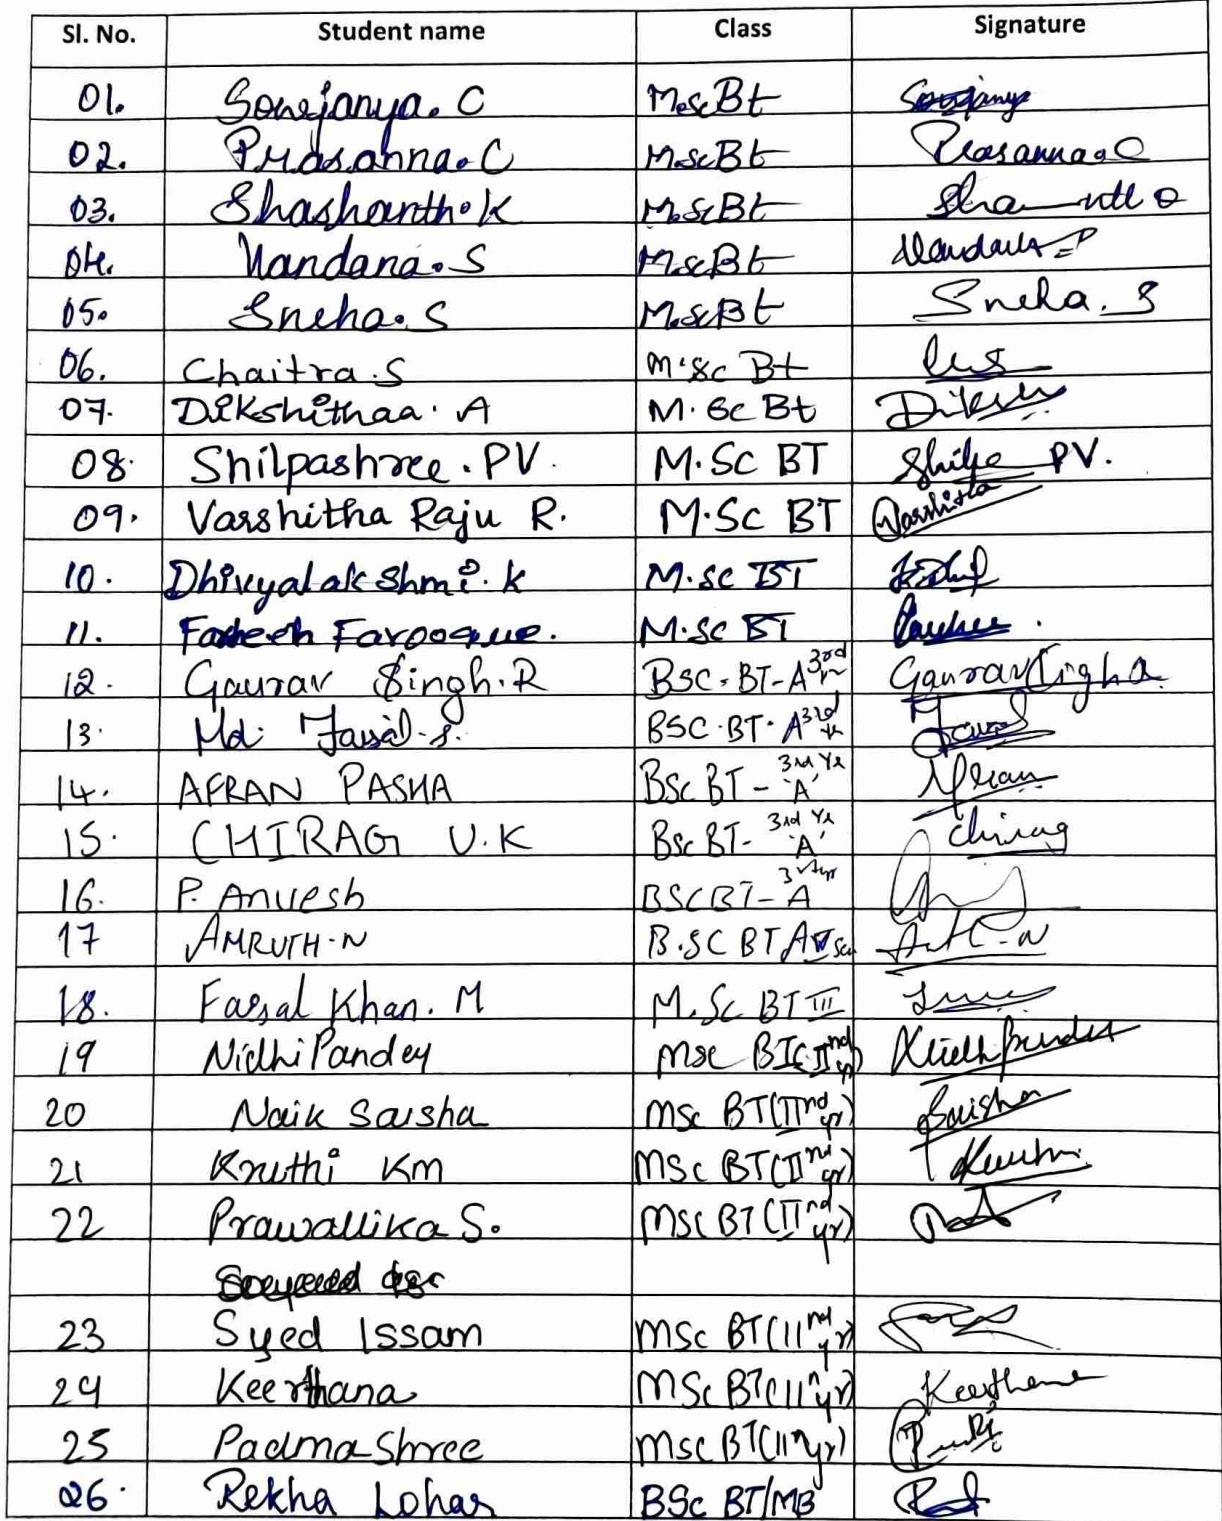 Sl. No. Student name Class Signature
01. Sowjanya. C M.sc Bt Sowjanya
02. Prasanna. C M.sc Bt Prasanna. C
03. Shashanth. K M.sc Bt
04. Nandana. S M.sc Bt
05. Sneha. S M.sc Bt Sneha. S
06. Chaitra. S M.sc Bt
07. Dikshithaa. A M. Sc Bt
08. Shilpashree. PV. M.SC BT Shilpa PV.
09. Varshitha Raju R. M.SC BT Varshitha
10. Dhivyalakshmi. k M.sc BT
11. Farooque. M.sc BT
12. Gaurav Singh. R BSC - BT - A 3rd
13. Md. Faisal. S. BSC . BT . A 3rd
14. AFRAN PASHA BSc BT - 'A' 3rd Yr
15. CHIRAG U.K BSc BT - 'A' 3rd Yr Chirag
16. P. Anvesh BSC BT - A 3rd yr
17 AMRUTH. N B.SC BT A
18. Faisal Khan. M M.Sc BT III
19 Nidhi Pandey Msc BT (IInd yr)
20 Naik Saisha MSc BT (IInd yr) Saisha
21 Kruthi KM MSc BT (IInd yr)
22 Prawallika S. MSC BT (IInd yr)
23 Syed Issam MSc BT (IInd yr)
24 Keerthana MSc BT (IIn yr) Keerthana
25 Padma Shree MSC BT (IInyr)
26. Rekha Lohar BSc BT/MB